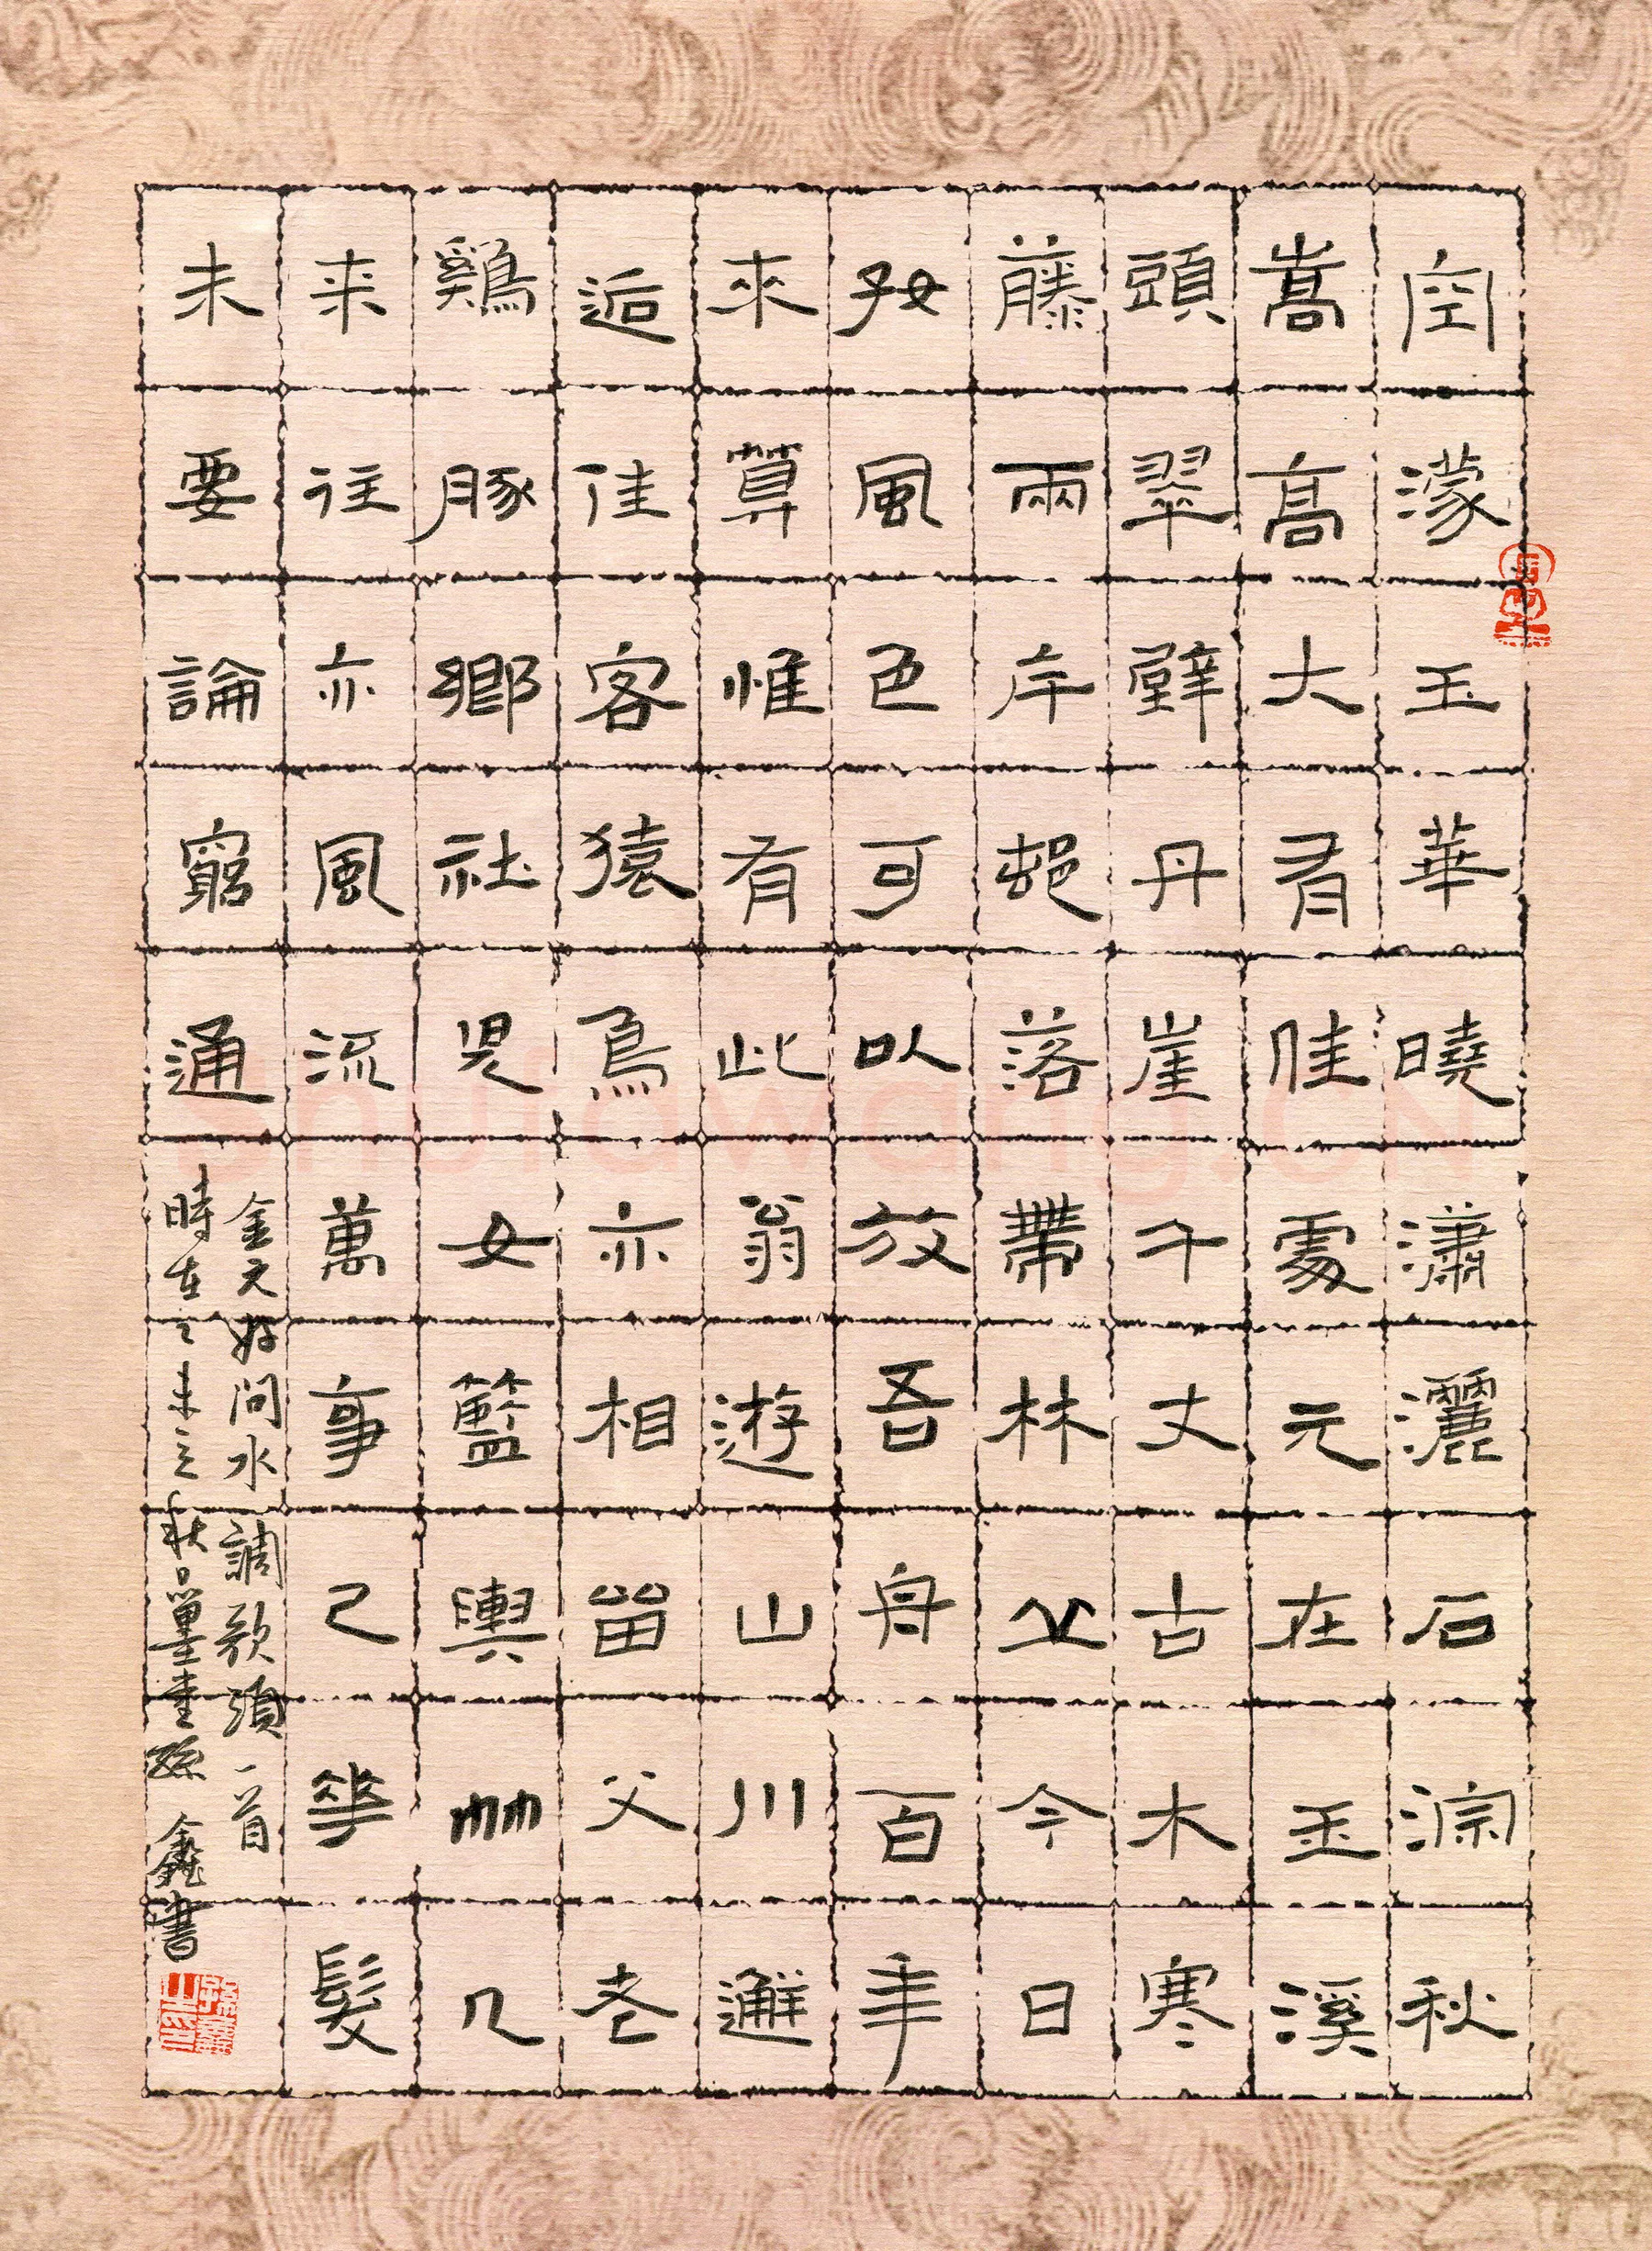 空濛玉華曉瀟灑石淙秋
嵩高大有佳處元在玉溪
頭翠壁丹崖千丈古木寒
藤兩岸邨落帶林丘今日
好風色可以放吾舟百年
來算惟有此翁遊山川邂
逅佳客猿鳥亦相留父老
鷄豚鄉社兒女籃輿竹几
来往亦風流萬事已華髮
未要論窮通
金元好問水調歌頭一首
時在乙未之秋日墨堂孫鑫書
shufawang.CN